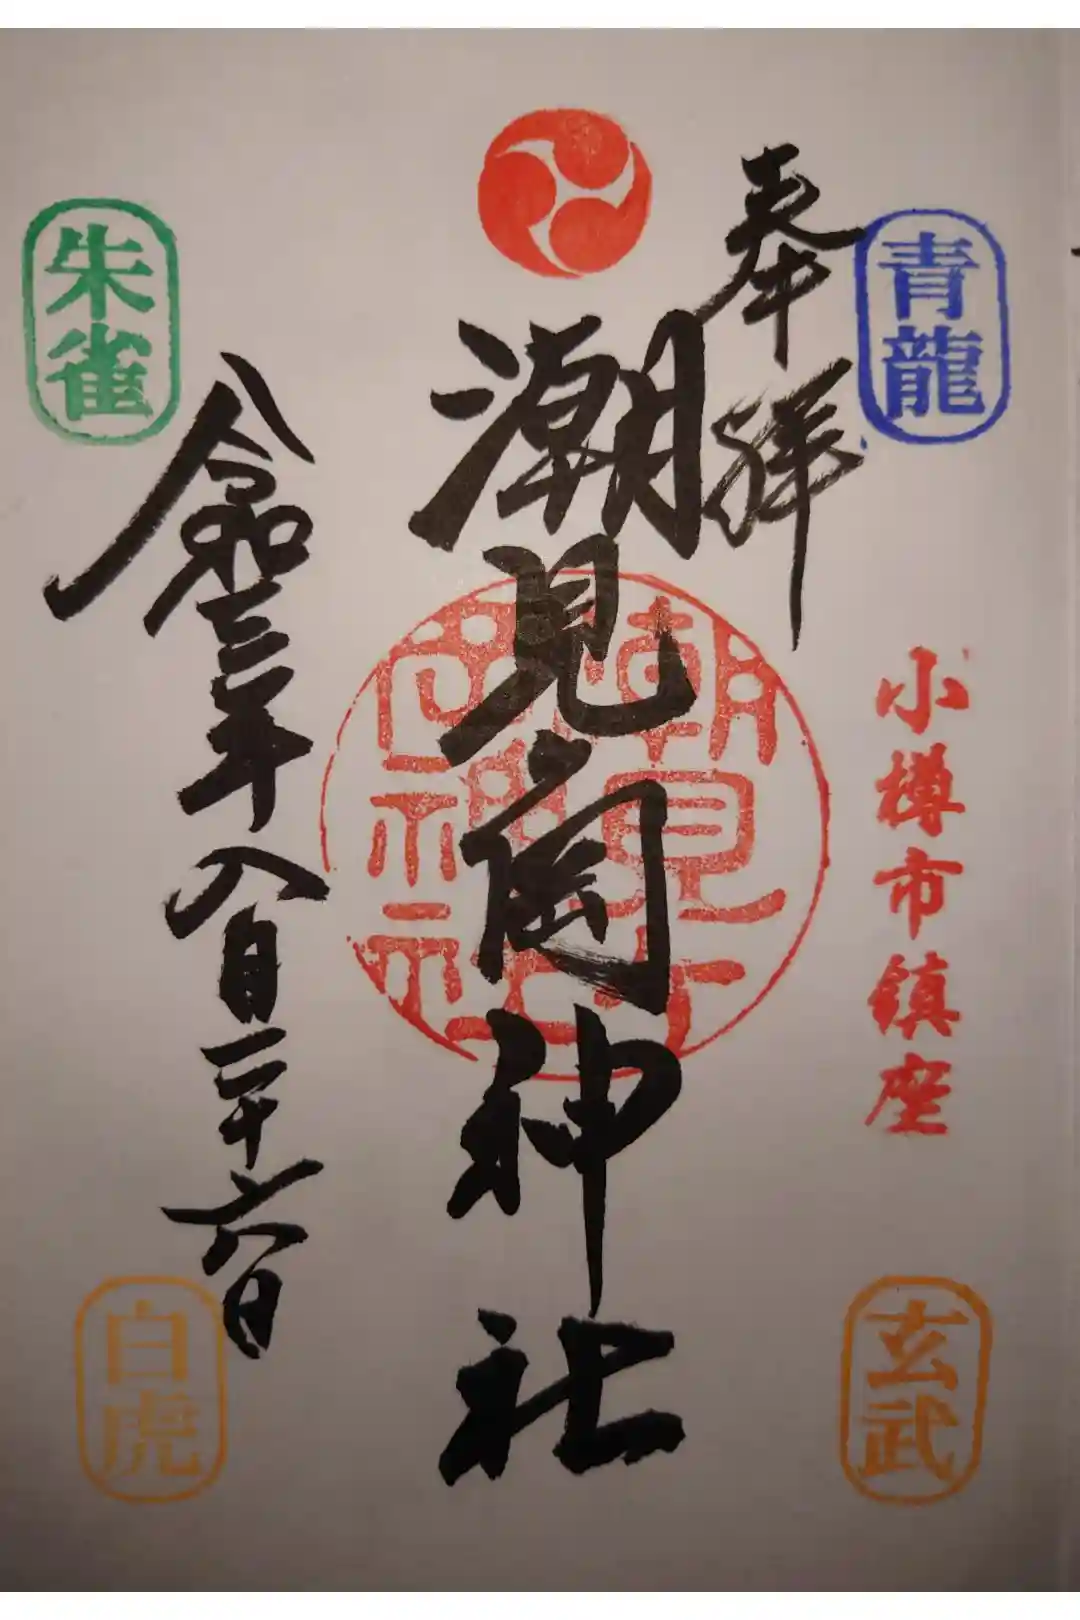 奉拝
青龍
小樽市鎮座
玄武
潮見ヶ岡神社
朱雀
令和三年八月二十六日
白虎